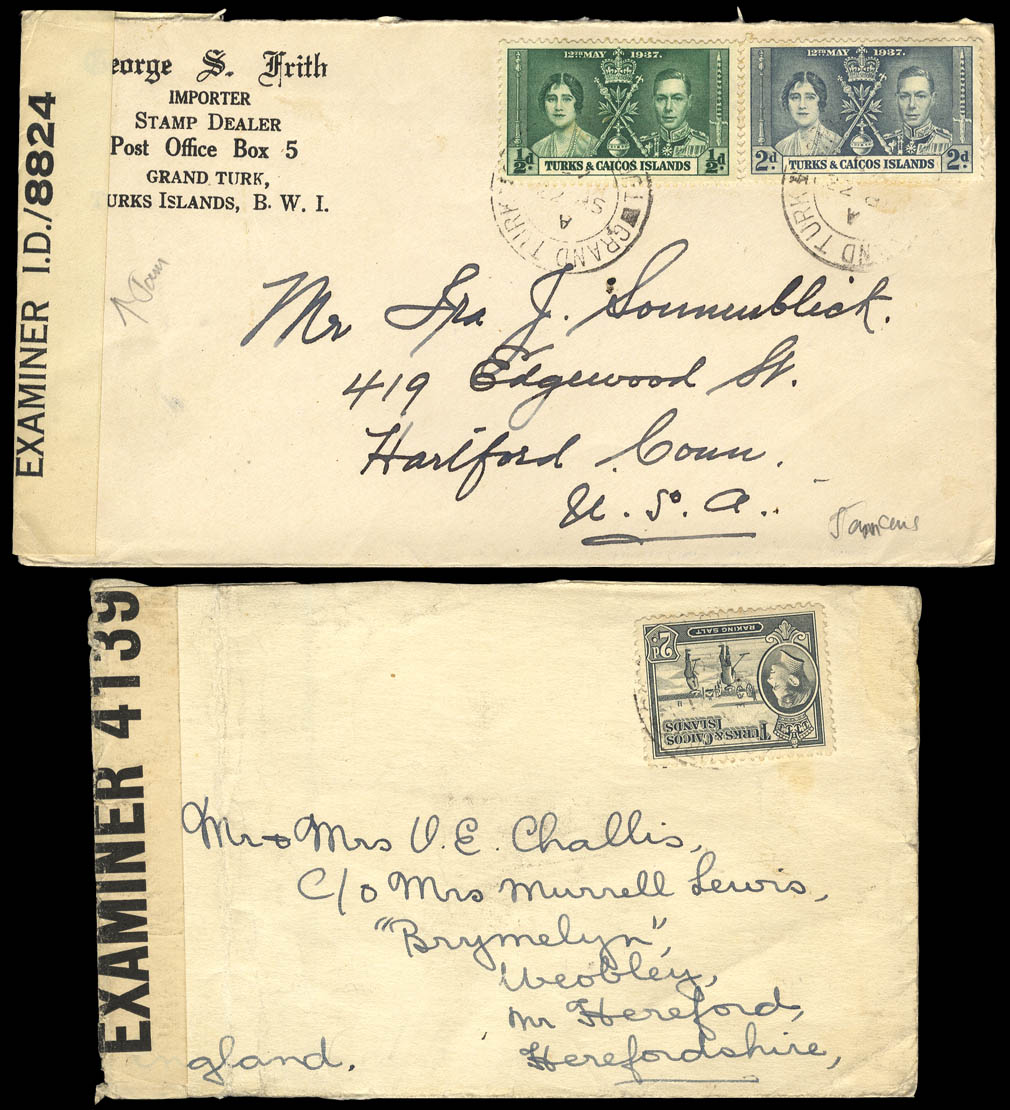 eorge S. Frith
IMPORTER
STAMP DEALER
Post Office Box 5
GRAND TURK,
URKS ISLANDS, B. W. I.
EXAMINER I.D./8824
12TH MAY 1937.
½d. TURKS & CAICOS ISLANDS ½d.
12TH MAY 1937.
2d. TURKS & CAICOS ISLANDS 2d.
GRAND TURK
A
GRAND TURK
A
Jam
Mr Ira J. Sonnenblick.
419 Edgewood St.
Hartford Conn.
U. S. A.
EXAMINER 4139
TURKS & CAICOS
ISLANDS
2d
RAKING SALT
Mr & Mrs V. E. Challis,
C/o Mrs Murrell Lewis,
"Brymelyn",
Weobley,
nr Hereford,
Herefordshire,
ngland.